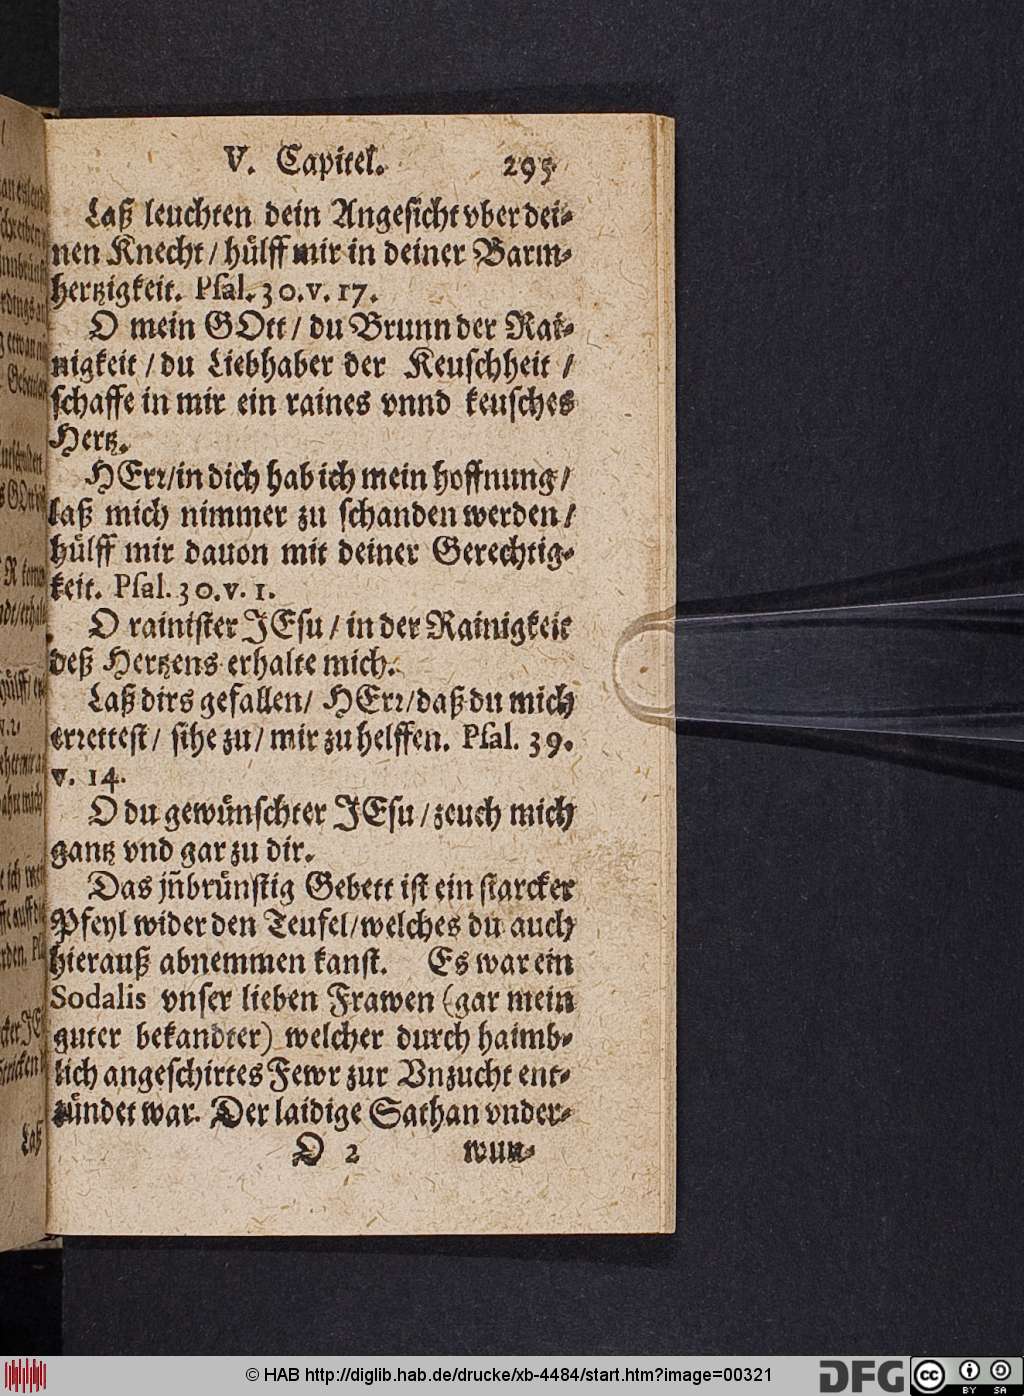 V. Capitel. 295
Laß leuchten dein Angesicht vber dei-
nen Knecht / hülff mir in deiner Barm-
hertzigkeit. Psal. 30. v. 17.
O mein GOtt / du Brunn der Rai-
nigkeit / du Liebhaber der Keuschheit /
schaffe in mir ein raines vnnd keusches
Hertz.
HErr / in dich hab ich mein hoffnung /
laß mich nimmer zu schanden werden /
hülff mir dauon mit deiner Gerechtig-
keit. Psal. 30. v. 1.
O rainister JEsu / in der Rainigkeit
deß Hertzens erhalte mich.
Laß dirs gefallen / HErr / daß du mich
errettest / sihe zu / mir zu helffen. Psal. 39.
v. 14.
O du gewünschter JEsu / zeuch mich
gantz vnd gar zu dir.
Das jn̄brünstig Gebett ist ein starcker
Pfeyl wider den Teufel / welches du auch
hierauß abnemmen kanst. Es war ein
Sodalis vnser lieben Frawen (gar mein
guter bekandter) welcher durch haimb-
lich angeschirtes Fewr zur Vnzucht ent-
zündet war. Der laidige Sathan vnder-
O 2 wun-
© HAB http://diglib.hab.de/drucke/xb-4484/start.htm?image=00321
DFG cc BY SA